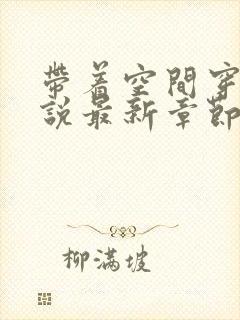 帶着空間穿
說最新章節
柳滿坡